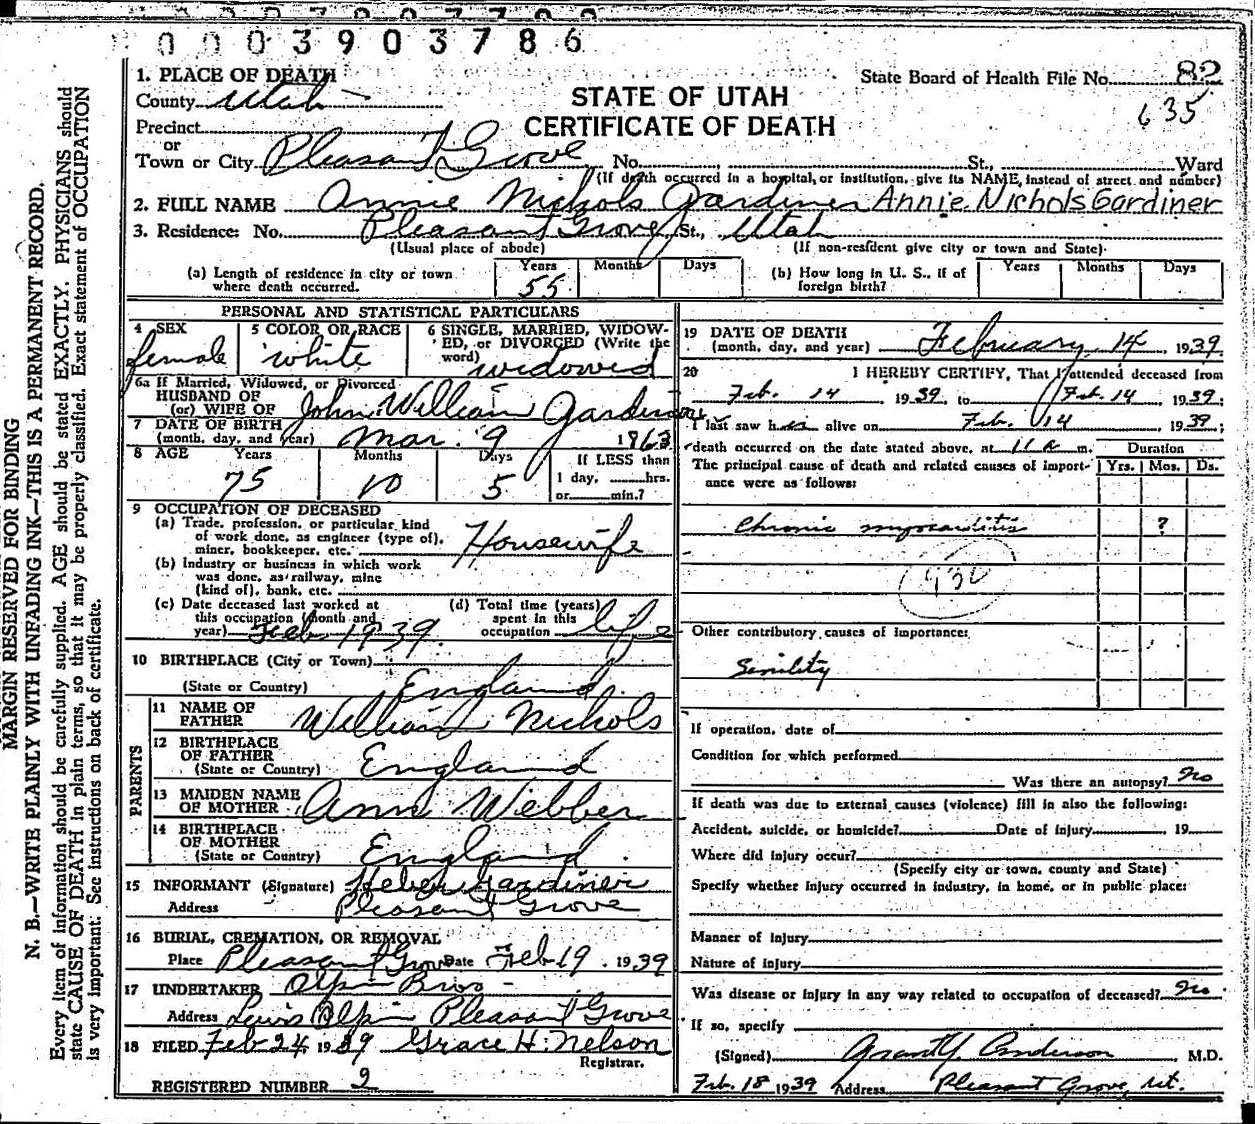 0003903786
MARGIN RESERVED FOR BINDING
N. B.—WRITE PLAINLY WITH UNFADING INK—THIS IS A PERMANENT RECORD.
Every item of information should be carefully supplied. AGE should be stated EXACTLY. PHYSICIANS should
state CAUSE OF DEATH in plain terms, so that it may be properly classified. Exact statement of OCCUPATION
is very important. See instructions on back of certificate.
State Board of Health File No. 82
635
STATE OF UTAH
CERTIFICATE OF DEATH
1. PLACE OF DEATH
County Utah
Precinct
or
Town or City Pleasant Grove No. St., Ward
(If death occurred in a hospital or institution, give its NAME, instead of street and number)
2. FULL NAME Annie Nichols Gardiner Annie Nichols Gardiner
3. Residence: No. Pleasant Grove St., Utah
(Usual place of abode) (If non-resident give city or town and State)
(a) Length of residence in city or town where death occurred. Years 55 Months Days
(b) How long in U. S., if of foreign birth? Years Months Days
PERSONAL AND STATISTICAL PARTICULARS
4 SEX female
5 COLOR OR RACE white
6 SINGLE, MARRIED, WIDOWED, or DIVORCED (Write the word) widowed
6a If Married, Widowed, or Divorced
HUSBAND OF
(or) WIFE OF John William Gardiner
7 DATE OF BIRTH
(month, day, and year) Mar. 9 1863
8 AGE Years 75 Months 10 Days 5 If LESS than 1 day, hrs. or min.?
9 OCCUPATION OF DECEASED
(a) Trade, profession, or particular kind of work done, as engineer (type of), miner, bookkeeper, etc. Housewife
(b) Industry or business in which work was done, as railway, mine (kind of), bank, etc.
(c) Date deceased last worked at this occupation (month and year) Feb 1939
(d) Total time (years) spent in this occupation life
10 BIRTHPLACE (City or Town)
(State or Country) England
PARENTS
11 NAME OF FATHER William Nichols
12 BIRTHPLACE OF FATHER
(State or Country) England
13 MAIDEN NAME OF MOTHER Ann Webber
14 BIRTHPLACE OF MOTHER
(State or Country) England
15 INFORMANT (Signature) Heber Gardiner
Address Pleasant Grove
16 BURIAL, CREMATION, OR REMOVAL
Place Pleasant Grove Date Feb 19, 1939
17 UNDERTAKER Olpin Bros
Address Lewis Olpin Pleasant Grove
18 FILED Feb 24 1939 Grace H. Nelson
Registrar.
REGISTERED NUMBER 2
19 DATE OF DEATH
(month, day, and year) February 14, 1939
20 I HEREBY CERTIFY, That I attended deceased from
Feb. 14 1939, to Feb. 14 1939;
I last saw her alive on Feb. 14 1939;
death occurred on the date stated above, at 11 a m.
The principal cause of death and related causes of importance were as follows:
Duration
Yrs. Mos. Ds.
Chronic myocarditis ?
930
Other contributory causes of importance:
Senility
If operation, date of
Condition for which performed
Was there an autopsy? no
If death was due to external causes (violence) fill in also the following:
Accident, suicide, or homicide? Date of injury , 19
Where did injury occur?
(Specify city or town, county and State)
Specify whether injury occurred in industry, in home, or in public place:
Manner of injury
Nature of injury
Was disease or injury in any way related to occupation of deceased? no
If so, specify
(Signed) Grant Y. Anderson M.D.
Feb. 18 1939 Address Pleasant Grove, Ut.